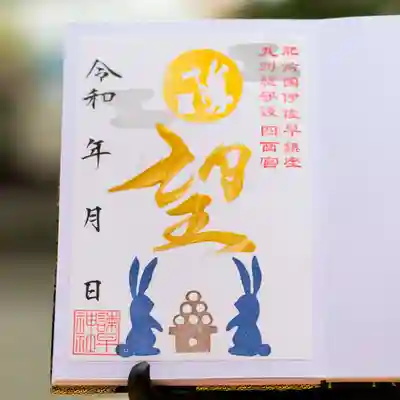 肥前国伊佐早鎮座
九州総守護四面宮
望
令和 年 月 日
諫早
神社